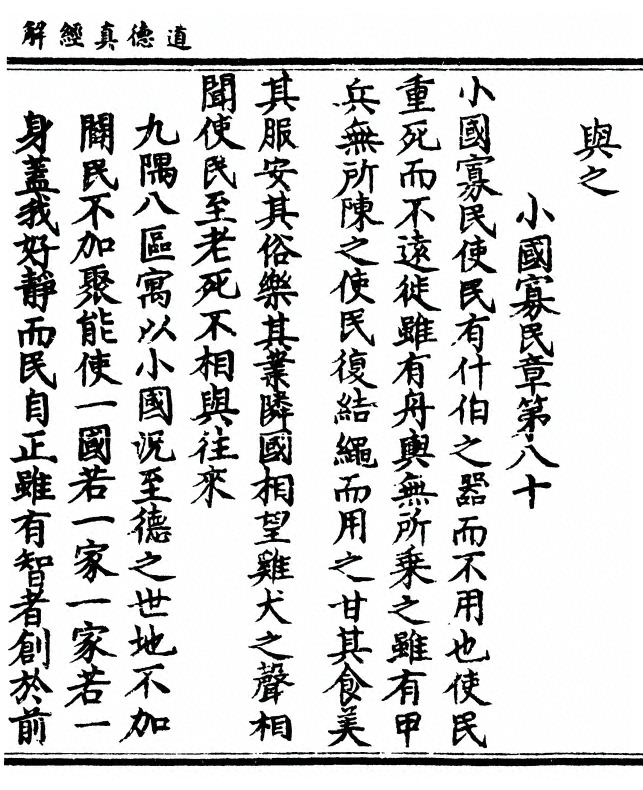 道德真經解
與之
小國寡民章第八十
小國寡民使民有什伯之器而不用也使民
重死而不遠徙雖有舟輿無所乗之雖有甲
兵無所陳之使民復結繩而用之甘其食美
其服安其俗樂其業隣國相望雞犬之聲相
聞使民至老死不相與往來
九隅八區寓以小國況至德之世地不加
闢民不加聚能使一國若一家一家若一
身蓋我好靜而民自正雖有智者創於前